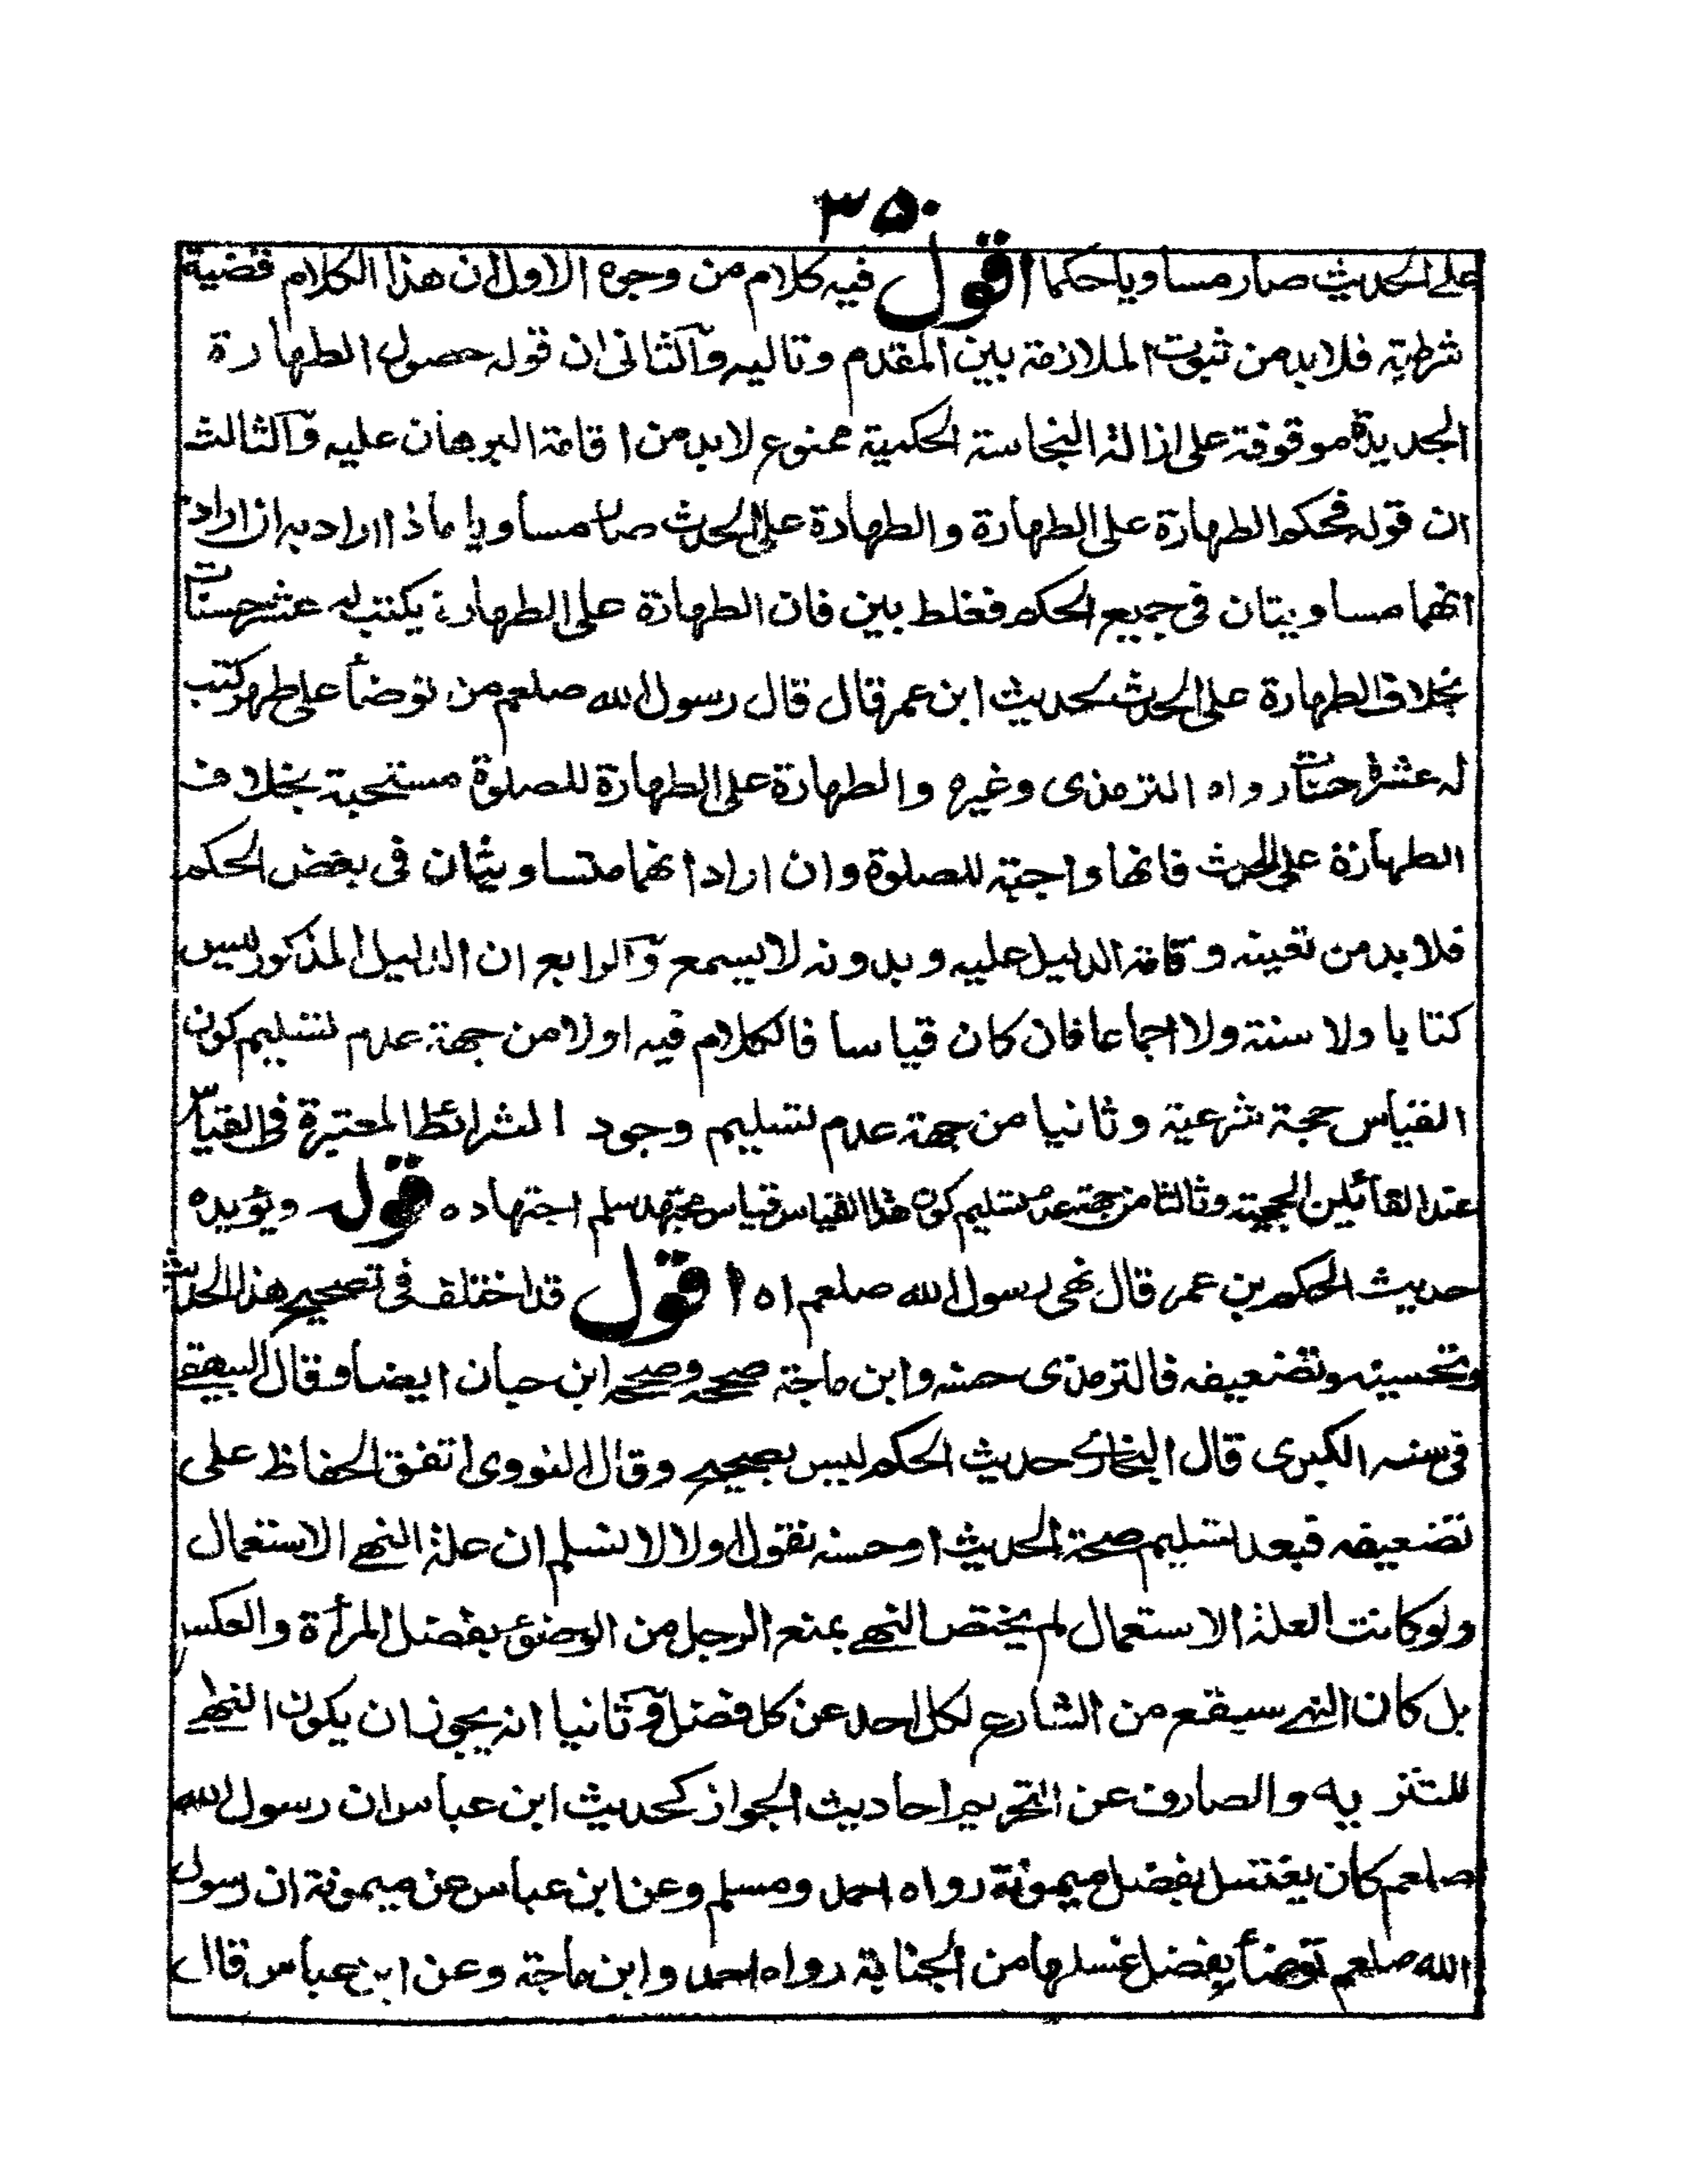 ٣٥٠
على الحديث صار مساويا حكما اقول فيه كلام من وجوه الاول ان هذا الكلام قضية
شرطية فلابد من ثبوت الملازمة بين المقدم وتاليه والثانى ان قوله حصول الطهارة
الجديدة موقوفة على ازالة النجاسة الحكمية ممنوع لابد من اقامة البرهان عليه والثالث
ان قوله فحكم الطهارة على الطهارة والطهارة على الحدث صار مساويا ماذا اراد به ان اراد
انهما مساويتان فى جميع الحكم فغلط بين فان الطهارة على الطهارة يكتب له عشر حسنات
بخلاف الطهارة على الحدث لحديث ابن عمر قال قال رسول الله صلعم من توضأ على طهر كتب
له عشر حسنات رواه الترمذى وغيره والطهارة على الطهارة للصلوة مستحبة بخلاف
الطهارة على الحدث فانها واجبة للصلوة وان اراد انهما متساويتان فى بعض الحكم
فلابد من تعينه وقامة الدليل عليه وبدونه لا يسمع والرابع ان الدليل المذكور ليس
كتابا ولا سنة ولا اجماعا فان كان قياسا فالكلام فيه اولا من جهة عدم تسليم كون
القياس حجة شرعية وثانيا من جهة عدم تسليم وجود الشرائط المعتبرة فى القياس
عند القائلين الحجية وثالثا من جهة عدم تسليم كون هذا القياس قياس مجتهد سلم اجتهاده قوله ويؤيده
حديث الحكم بن عمر قال نهى رسول الله صلعم اه اقول قد اختلف فى تصحيح هذا الحديث
وتحسينه وتضعيفه فالترمذى حسنه وابن ماجة صححه وصححه ابن حبان ايضا وقال البيهقى
فى سننه الكبرى قال البخارى حديث الحكم ليس بصحيح وقال النووى اتفق الحفاظ على
تضعيفه فبعد تسليم صحة الحديث او حسنه نقول اولا لا نسلم ان علة النهى الاستعمال
ولو كانت العلة الاستعمال لم يختص النهى بمنع الرجل من الوضوء بفضل المرأة والعكس
بل كان النهى سيقع من الشارع لكل احد عن كل فضل وثانيا انه يجوز ان يكون النهى
للتنزيه والصارف عن التحريم احاديث الجواز كحديث ابن عباس ان رسول الله
صلعم كان يغتسل بفضل ميمونة رواه احمد ومسلم وعن ابن عباس عن ميمونة ان رسول
الله صلعم توضأ بفضل غسلها من الجنابة رواه احمد وابن ماجة وعن ابن عباس قال